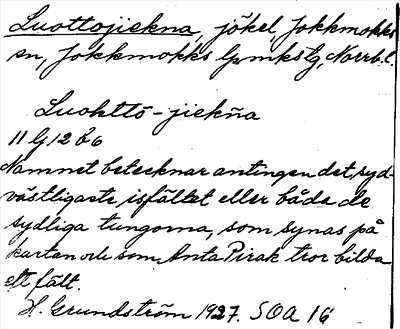 Luottojiekna, jökel, Jokkmokks
sn, Jokkmokks lpmkslg, Norrb. l.
Luohttō-jiekŋa
11 G 12 b 6
Namnet betecknar antingen det syd-
västligaste isfältet eller båda de
sydliga tungorna, som synas på
kartan och som Anta Pirak tror bilda
ett fält.
H. Grundström 1927. SOA 16